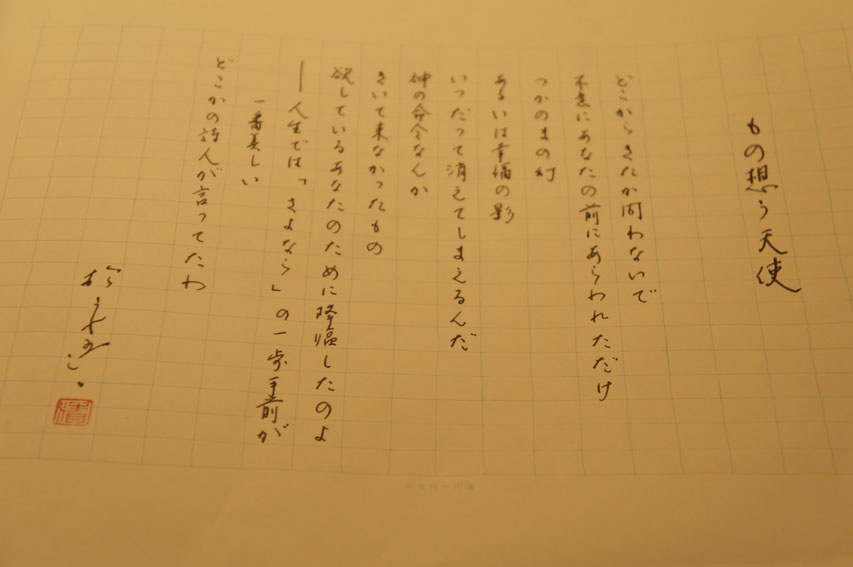 もの想う天使
どこからきたか問わないで
不意にあなたの前にあらわれただけ
つかのまの幻
あるいは幸福の影
いつだって消えてしまえるんだ
神の命令なんか
きいて来なかったもの
欲しているあなたのために降臨したのよ
―人生では「さよなら」の一歩手前が
一番美しい
どこかの詩人が言ってたわ